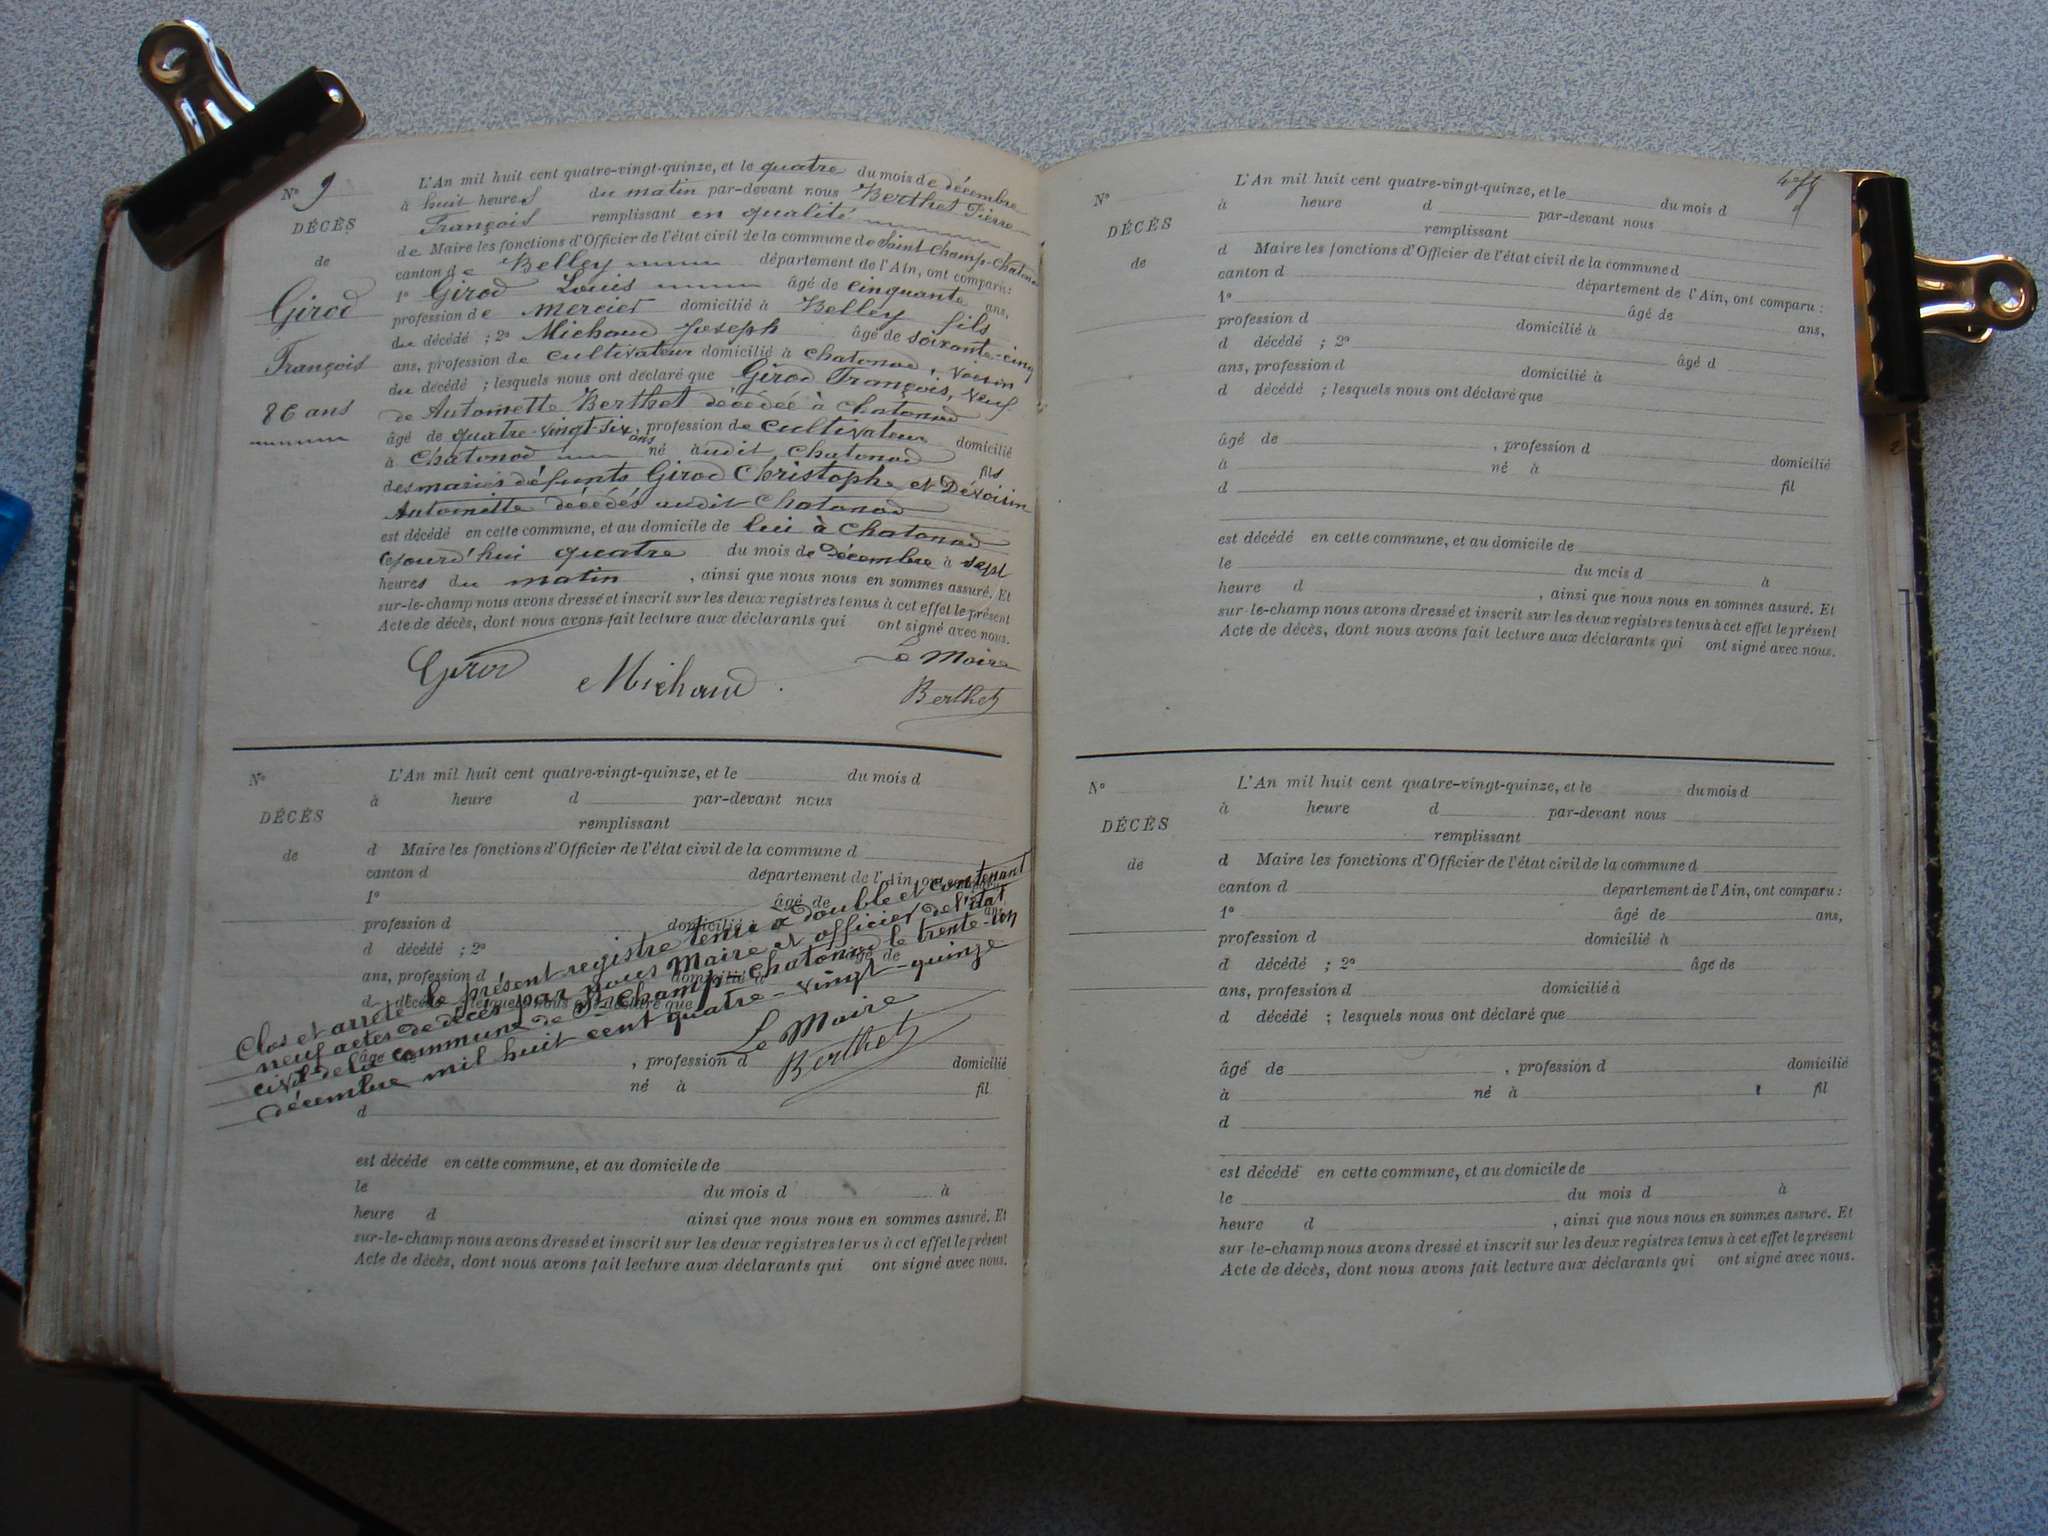 N° 9
DÉCÈS
de
Girod
François
86 ans
L'An mil huit cent quatre-vingt-quinze, et le quatre du mois de décembre
à huit heures du matin par-devant nous Berthet Pierre
François remplissant en qualité
de Maire les fonctions d'Officier de l'état civil de la commune de Saint Champ-Chatonod
canton de Belley département de l'Ain, ont comparu:
1° Girod Louis âgé de cinquante ans,
profession de mercier domicilié à Belley fils
du décédé ; 2° Michaud Joseph âgé de soixante-cinq
ans, profession de cultivateur domicilié à Chatonod, voisin
du décédé ; lesquels nous ont déclaré que Girod François, veuf
de Antoinette Berthet décédée à Chatonod
âgé de quatre-vingt six ans, profession de cultivateur domicilié
à Chatonod né audit Chatonod fils
des mariés défunts Girod Christophe et Dévoisin
Antoinette décédés audit Chatonod
est décédé en cette commune, et au domicile de lui à Chatonod
cejourd'hui quatre du mois de décembre à sept
heures du matin , ainsi que nous nous en sommes assuré. Et
sur-le-champ nous avons dressé et inscrit sur les deux registres tenus à cet effet le présent
Acte de décès, dont nous avons fait lecture aux déclarants qui ont signé avec nous.
Girod Michaud Le Maire
Berthet
N°
DÉCÈS
de
L'An mil huit cent quatre-vingt-quinze, et le du mois d
à heure d par-devant nous
remplissant
d Maire les fonctions d'Officier de l'état civil de la commune d
canton d département de l'Ain, ont comparu
1° âgé de ans
profession d domicilié à
d décédé ; 2° âgé de
ans, profession d domicilié à
d décédé ; lesquels nous ont déclaré que
Clos et arrêté le présent registre tenu à double et contenant
neuf actes de décès par nous Maire et officier de l'état
civil de la commune de St Champ-Chatonod le trente-un
décembre mil huit cent quatre-vingt-quinze
Le Maire
Berthet
âgé de , profession d domicilié
né à fil
d
est décédé en cette commune, et au domicile de
le du mois d à
heure d ainsi que nous nous en sommes assuré. Et
sur-le-champ nous avons dressé et inscrit sur les deux registres tenus à cet effet le présent
Acte de décès, dont nous avons fait lecture aux déclarants qui ont signé avec nous.
N°
DÉCÈS
de
L'An mil huit cent quatre-vingt-quinze, et le du mois d
à heure d par-devant nous
remplissant
d Maire les fonctions d'Officier de l'état civil de la commune d
canton d département de l'Ain, ont comparu :
1° âgé de ans,
profession d domicilié à
d décédé ; 2° âgé d
ans, profession d domicilié à
d décédé ; lesquels nous ont déclaré que
âgé de , profession d domicilié
à né à fil
d
est décédé en cette commune, et au domicile de
le du mois d à
heure d , ainsi que nous nous en sommes assuré. Et
sur-le-champ nous avons dressé et inscrit sur les deux registres tenus à cet effet le présent
Acte de décès, dont nous avons fait lecture aux déclarants qui ont signé avec nous.
N°
DÉCÈS
de
L'An mil huit cent quatre-vingt-quinze, et le du mois d
à heure d par-devant nous
remplissant
d Maire les fonctions d'Officier de l'état civil de la commune d
canton d département de l'Ain, ont comparu :
1° âgé de ans,
profession d domicilié à
d décédé ; 2° âgé de
ans, profession d domicilié à
d décédé ; lesquels nous ont déclaré que
âgé de , profession d domicilié
à né à fil
d
est décédé en cette commune, et au domicile de
le du mois d à
heure d , ainsi que nous nous en sommes assuré. Et
sur-le-champ nous avons dressé et inscrit sur les deux registres tenus à cet effet le présent
Acte de décès, dont nous avons fait lecture aux déclarants qui ont signé avec nous.